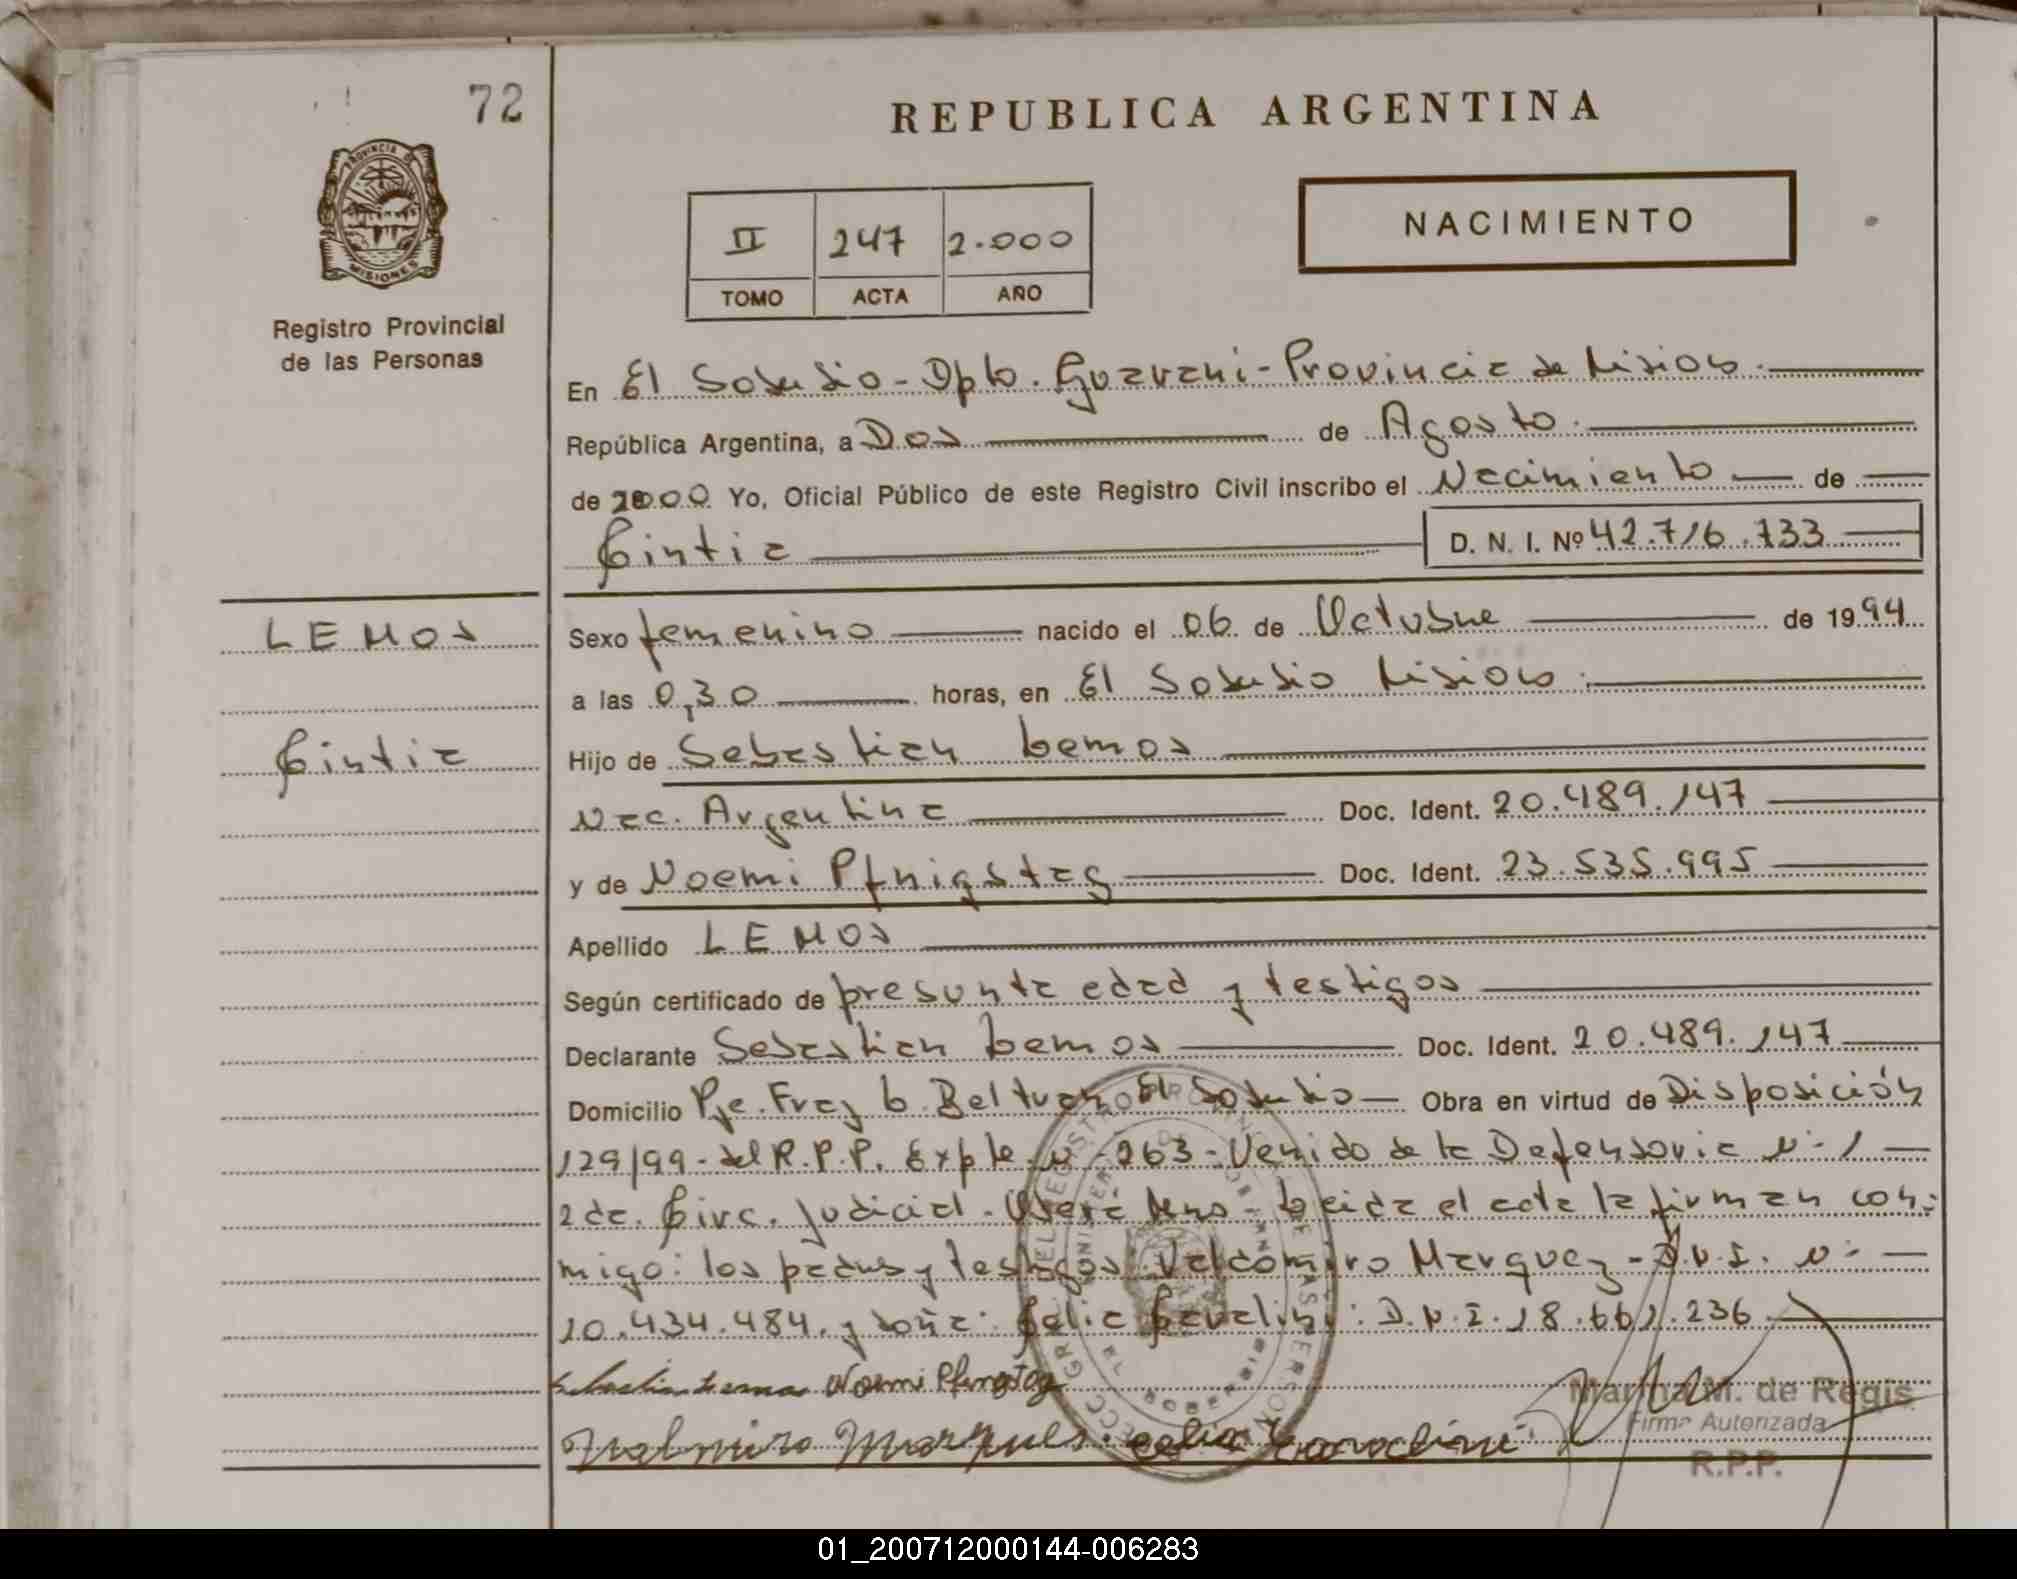 72
REPUBLICA ARGENTINA
PROVINCIA DE
MISIONES
NACIMIENTO
II 247 2.000
TOMO ACTA AÑO
Registro Provincial
de las Personas
En El Soberbio - Dpto. Guarani - Provincia de Misiones.
República Argentina, a Dos de Agosto.
de 2000 Yo, Oficial Público de este Registro Civil inscribo el Nacimiento de
Cintia D. N. I. Nº 42.716.733
LEMOS
Sexo femenino nacido el 06 de Octubre de 1994
a las 0,30 horas, en El Soberbio Misiones.
Cintia
Hijo de Sebastian Lemos
Nac. Argentina Doc. Ident. 20.489.147
y de Noemi Pfnigstag Doc. Ident. 23.535.995
Apellido LEMOS
Según certificado de presunta edad y testigos
Declarante Sebastian Lemos Doc. Ident. 20.489.147
Domicilio Pje. Fray L. Beltran El Soberbio Obra en virtud de Disposición
129/99 - del R.P.P. Expte. Nº 263 - Venido de la Defensoria Nº 1
2da. Circ. Judicial. Oberá Mnes - Leida el acta la firman con-
migo: los padres y testigos: Valdomiro Marquez - D.N.I. Nº
10.434.484. y doña: Celia Cavalini: D.N.I. 18.661.236
Sebastian Lemos Noemi Pfingstag
Valmiro Marques. Celia
Marina M. de Regis
Firma Autorizada
R.P.P.
01_200712000144-006283